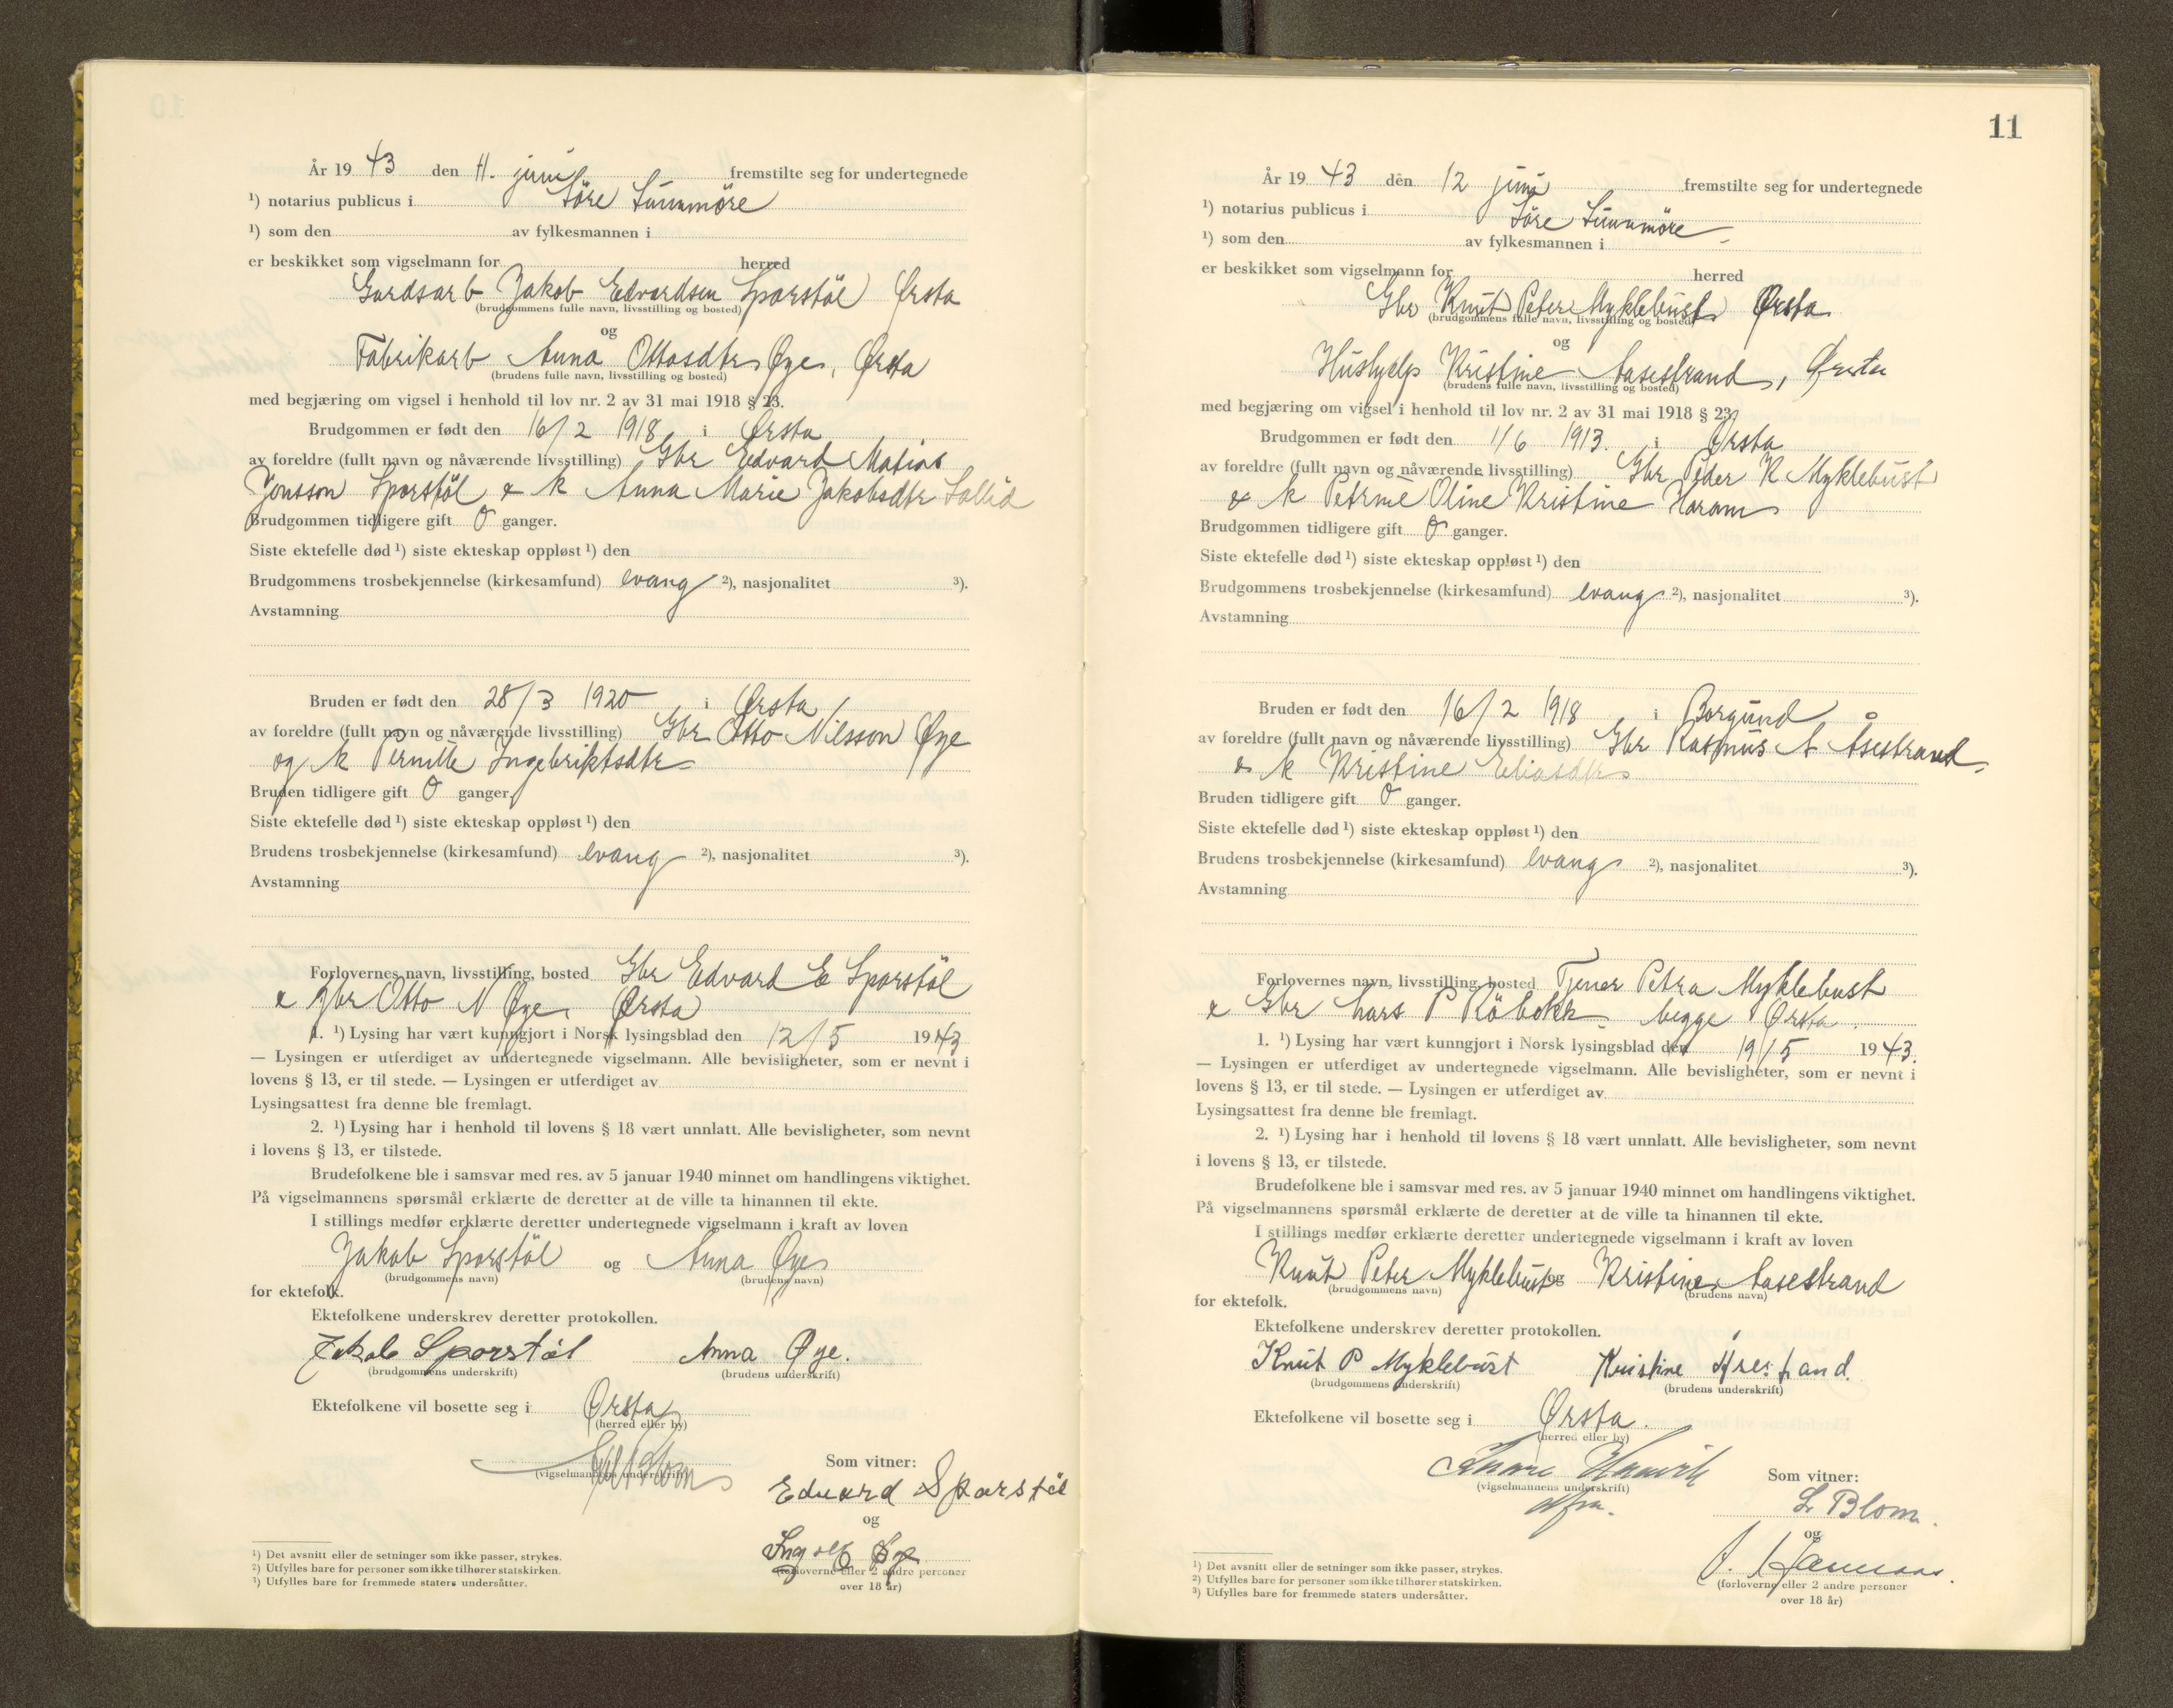 År 19 43 den 11. juni fremstilte seg for undertegnede
¹) notarius publicus i Söre Sunnmöre
¹) som den av fylkesmannen i
er beskikket som vigselmann for herred
Gardsarb Jakob Edvardsen Sporstöl Ørsta
(brudgommens fulle navn, livsstilling og bosted)
og
Fabrikarb Anna Ottosdtr Øye, Ørsta
(brudens fulle navn, livsstilling og bosted)
med begjæring om vigsel i henhold til lov nr. 2 av 31 mai 1918 § 23.
Brudgommen er født den 16/2 1918 i Ørsta
av foreldre (fullt navn og nåværende livsstilling) Gbr Edvard Matias
Jonsson Sporstöl & k Anna Marie Jakobsdtr
Brudgommen tidligere gift 0 ganger.
Siste ektefelle død ¹) siste ekteskap oppløst ¹) den
Brudgommens trosbekjennelse (kirkesamfund) evang ²), nasjonalitet ³).
Avstamning
Bruden er født den 28/3 1920 i Ørsta
av foreldre (fullt navn og nåværende livsstilling) Gbr Otto Nilsson Øye
og k Pernille Ingebriktsdtr
Bruden tidligere gift 0 ganger.
Siste ektefelle død ¹) siste ekteskap oppløst ¹) den
Brudens trosbekjennelse (kirkesamfund) evang ²), nasjonalitet ³).
Avstamning
Forlovernes navn, livsstilling, bosted Gbr Edvard E Sporstöl
& gbr Otto N Øye, Ørsta
1. ¹) Lysing har vært kunngjort i Norsk lysingsblad den 12/5 1943
— Lysingen er utferdiget av undertegnede vigselmann. Alle bevisligheter, som er nevnt i
lovens § 13, er til stede. — Lysingen er utferdiget av
Lysingsattest fra denne ble fremlagt.
2. ¹) Lysing har i henhold til lovens § 18 vært unnlatt. Alle bevisligheter, som nevnt
i lovens § 13, er tilstede.
Brudefolkene ble i samsvar med res. av 5 januar 1940 minnet om handlingens viktighet.
På vigselmannens spørsmål erklærte de deretter at de ville ta hinannen til ekte.
I stillings medfør erklærte deretter undertegnede vigselmann i kraft av loven
Jakob Sporstöl og Anna Øye
(brudgommens navn) (brudens navn)
for ektefolk.
Ektefolkene underskrev deretter protokollen.
Jakob Sporstöl Anna Øye.
(brudgommens underskrift) (brudens underskrift)
Ektefolkene vil bosette seg i Ørsta
(herred eller by)
(vigselmannens underskrift)
Som vitner:
Edvard Sporstöl
og
Ingolf Øye
(forloverne eller 2 andre personer
over 18 år)
¹) Det avsnitt eller de setninger som ikke passer, strykes.
²) Utfylles bare for personer som ikke tilhører statskirken.
³) Utfylles bare for fremmede staters undersåtter.
11
År 19 43 den 12 juni fremstilte seg for undertegnede
¹) notarius publicus i Söre Sunnmöre
¹) som den av fylkesmannen i
er beskikket som vigselmann for herred
Gbr Knut Peter Myklebust Ørsta
(brudgommens fulle navn, livsstilling og bosted)
og
Hushjelp Kristine Aasestrand, Ørsta
(brudens fulle navn, livsstilling og bosted)
med begjæring om vigsel i henhold til lov nr. 2 av 31 mai 1918 § 23.
Brudgommen er født den 1/6 1913. i Ørsta
av foreldre (fullt navn og nåværende livsstilling) Gbr Peder K Myklebust
& k Petrine Oline Kristine Haram
Brudgommen tidligere gift 0 ganger.
Siste ektefelle død ¹) siste ekteskap oppløst ¹) den
Brudgommens trosbekjennelse (kirkesamfund) evang ²), nasjonalitet ³).
Avstamning
Bruden er født den 16/2 1918 i Borgund
av foreldre (fullt navn og nåværende livsstilling) Gbr Rasmus A Åsestrand
& k Kristine Eliasdtr
Bruden tidligere gift 0 ganger.
Siste ektefelle død ¹) siste ekteskap oppløst ¹) den
Brudens trosbekjennelse (kirkesamfund) evang ²), nasjonalitet ³).
Avstamning
Forlovernes navn, livsstilling, bosted Tjener Petra Myklebust
& Gbr Lars P Röbekk begge Ørsta.
1. ¹) Lysing har vært kunngjort i Norsk lysingsblad den 19/5 1943.
— Lysingen er utferdiget av undertegnede vigselmann. Alle bevisligheter, som er nevnt i
lovens § 13, er til stede. — Lysingen er utferdiget av
Lysingsattest fra denne ble fremlagt.
2. ¹) Lysing har i henhold til lovens § 18 vært unnlatt. Alle bevisligheter, som nevnt
i lovens § 13, er tilstede.
Brudefolkene ble i samsvar med res. av 5 januar 1940 minnet om handlingens viktighet.
På vigselmannens spørsmål erklærte de deretter at de ville ta hinannen til ekte.
I stillings medfør erklærte deretter undertegnede vigselmann i kraft av loven
Knut Peter Myklebust og Kristine Aasestrand
(brudgommens navn) (brudens navn)
for ektefolk.
Ektefolkene underskrev deretter protokollen.
Knut P Myklebust Kristine Åsestrand.
(brudgommens underskrift) (brudens underskrift)
Ektefolkene vil bosette seg i Ørsta.
(herred eller by)
(vigselmannens underskrift)
Som vitner:
L Blom.
og
(forloverne eller 2 andre personer
over 18 år)
¹) Det avsnitt eller de setninger som ikke passer, strykes.
²) Utfylles bare for personer som ikke tilhører statskirken.
³) Utfylles bare for fremmede staters undersåtter.